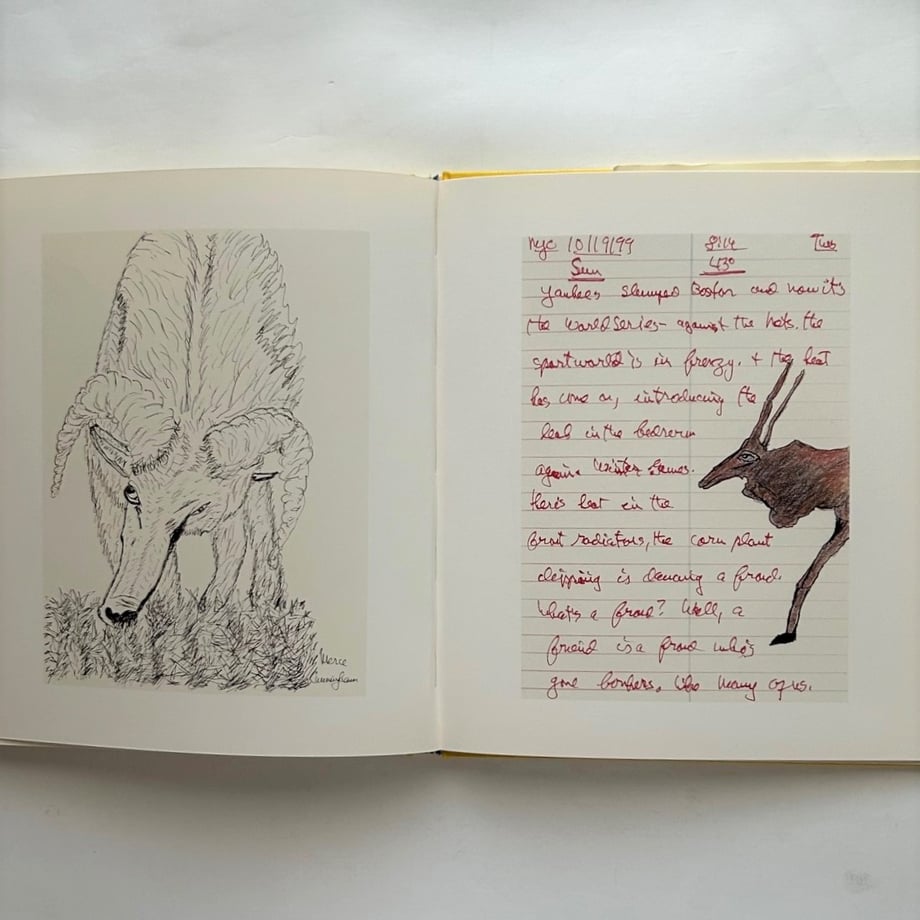 Merce
Cunningham
nyc 10/19/99 8:14 Tues
Sun 43°
Yankees slumped Boston and now it's
the World Series - against the hats. the
sportworld is in frenzy. + the heat
has come on, introducing the
leak in the bedroom
again.
there's heat in the
front radiators, the corn plant
clipping is dancing a frond.
What's a frond? Well, a
friend is a frond who's
gone bonkers, like many of us.